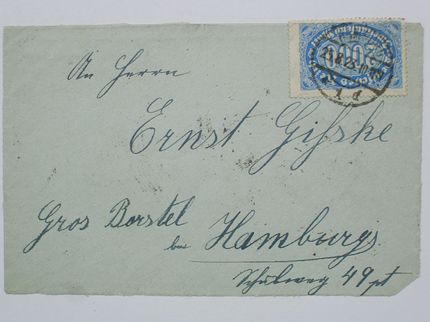 An Herrn
Ernst Gifske
Gros Borstel
bei Hamburg.
Schulweg 49 pt